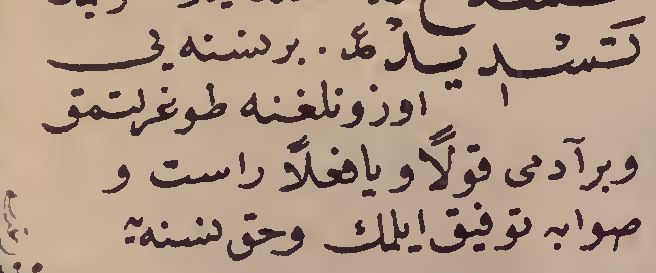 تسديد مع. برنسنه يى
اوزونلغنه طوغرلتمق
وبرآدمى قولاً ويافعلاً راست و
صوابه توفيق ايلمك وحق نسنه يه